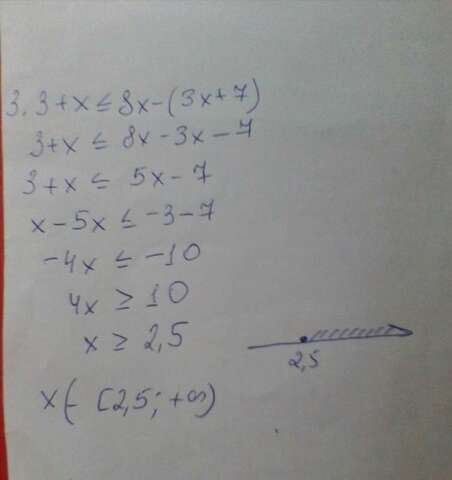 3. 3+x ≤ 8x-(3x+7)
3+x ≤ 8x-3x-7
3+x ≤ 5x-7
x-5x ≤ -3-7
-4x ≤ -10
4x ≥ 10
x ≥ 2,5
2,5
x(- [2,5; +∞)